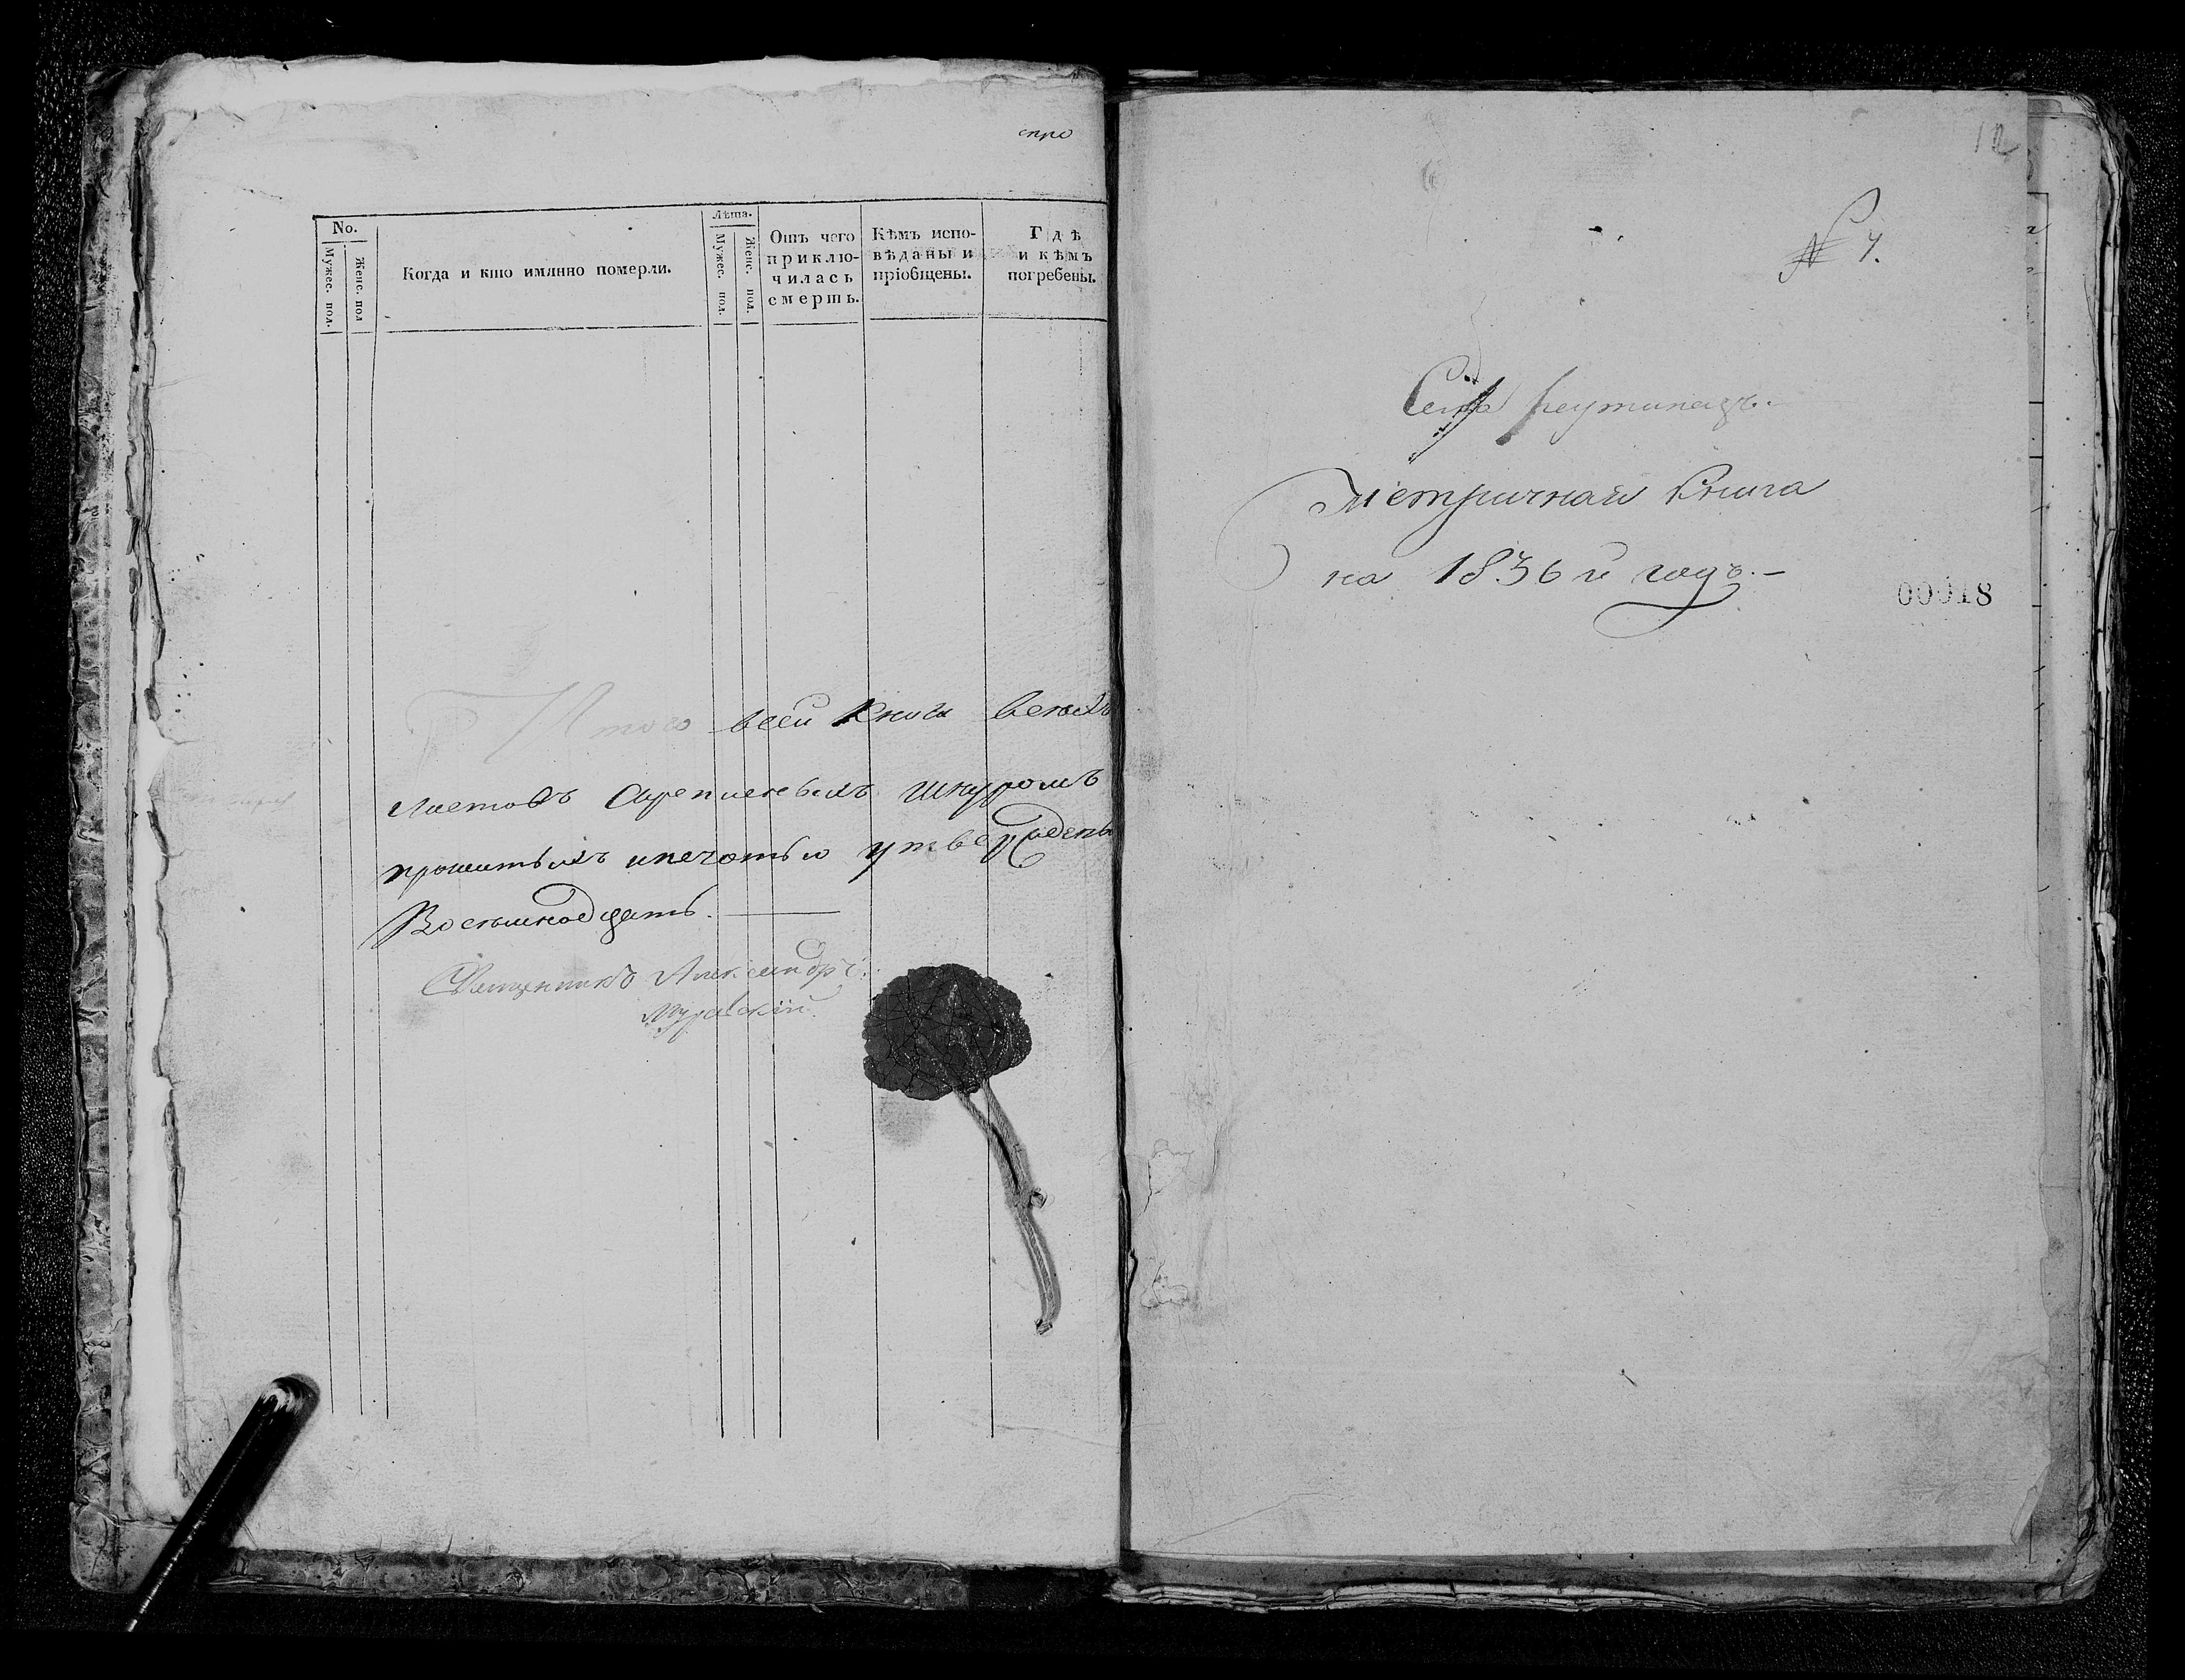 No.
Мужес. пол.
Женс. пол
Когда и кто имянно померли.
Лѣта.
Мужес. пол.
Женс. пол.
Отъ чего
приклю-
чилась
смерть.
Кѣмъ испо-
вѣданы и
пріобщены.
Гдѣ
и кѣмъ
погребены.
Итого всей книги всехъ
листовъ скрепленыхъ шнуромъ
прошитыхъ ипечатью утвержденыхъ
Восемнадцать.
Священникъ Александръ
Муравскій
12
№ 7.
Села
Метричная Книга
на 1836 й годъ.
00018